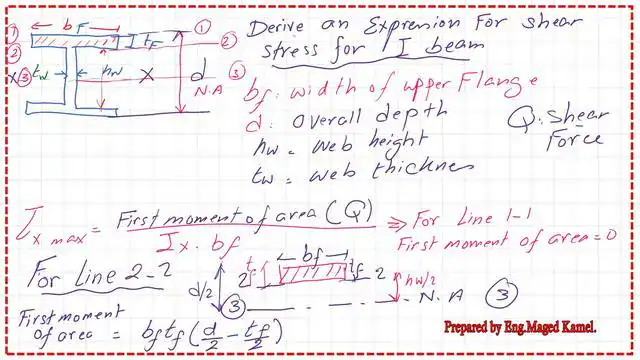 Derive an Expression For shear
stress for I beam
1 bf 1
tf
2 2
x 3 tw hw x d 3
N.A
bf: width of upper Flange
d: overall depth Q: shear
hw = web height Force
tw = web thicknes
τx max = First moment of area (Q) / Ix . bf ⇒ For Line 1-1
First moment of area = 0
For Line 2-2
d/2 2 tf bf tf 2 hw/2
3 N.A 3
First moment
of area = bf tf (d/2 - tf/2)
Prepared by Eng.Maged Kamel.